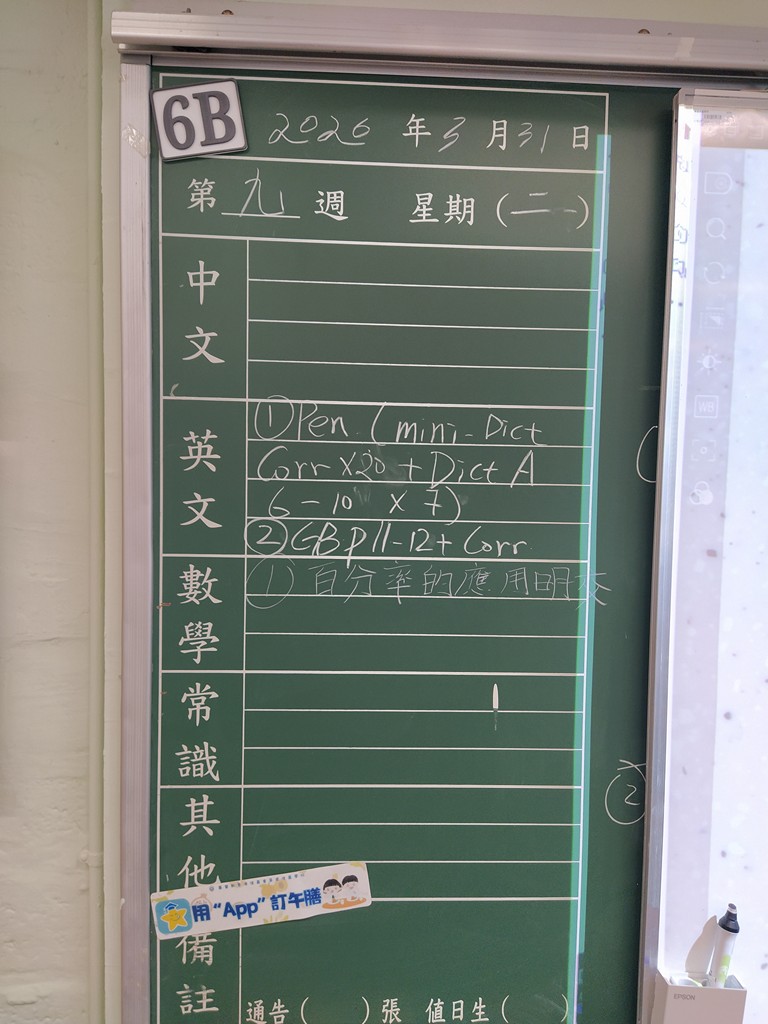 6B
2026 年 3 月 31 日
第 九 週 星期 (二)
中文
英文
① Pen (mini-Dict
Corr x20 + Dict A
6-10 x 7)
② GB p11-12 + Corr
數學
① 百分率的應用明交
常識
其他
用“App”訂午膳
備註
通告 ( ) 張 值日生 ( )
2
WB
EPSON